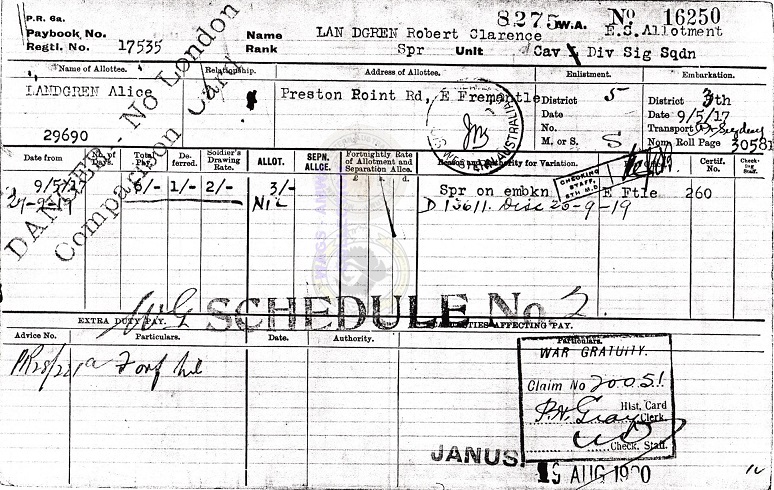 P.R. 6a.
8275 W.A. No 16250
Paybook No.
Regtl. No. 17535
Name LAN DGREN Robert Clarence E.S. Allotment
Rank Spr Unit Cav Div Sig Sqdn
Name of Allottee. Relationship. Address of Allottee. Enlistment. Embarkation.
LANDGREN Alice Preston Roint Rd, E Fremantle District 5 District
Date Date 9/5/17
29690 No. Transport
M. or S. S Nom. Roll Page
WESTERN AUSTRALIA
DANGER - No London
Comparison Card
Date from No. of Days. Total Pay. Deferred. Soldier's Drawing Rate. ALLOT. SEPN. ALLCE. Fortnightly Rate of Allotment and Separation Allce. Reason and Authority for Variation. Certif. No. Checking Staff.
£ s. d.
9/5/17 6/- 1/- 2/- 3/- Spr on embkn E Ftle 260
Nil D 13611. Disc 26-9-19
CHECKING STAFF, 5TH M.D.
SCHEDULE No 2.
EXTRA DUTY PAY. CASUALTIES AFFECTING PAY.
Advice No. Particulars. Date. Authority. Particulars.
Forf nil
WAR GRATUITY.
Claim No 20051.
Hist. Card
Clerk.
Check. Staff.
JANUS.
15 AUG 1920